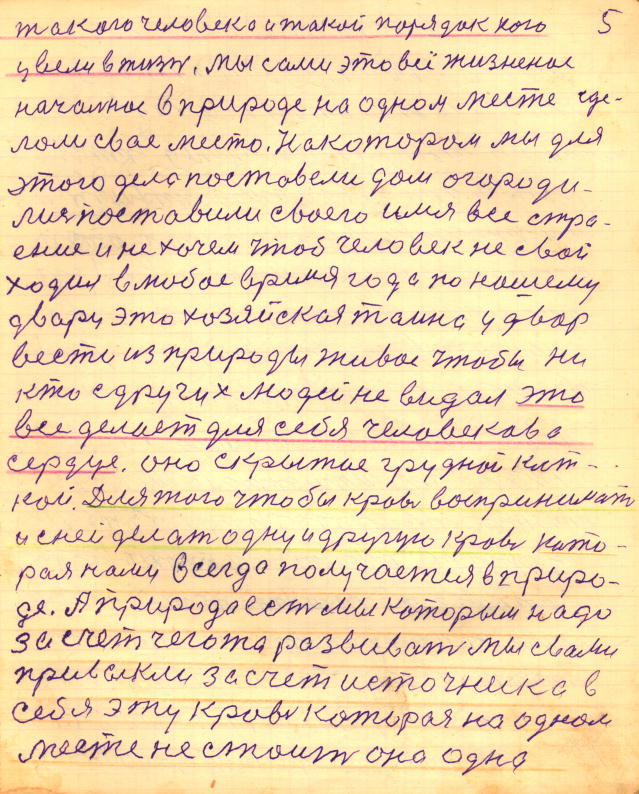 такого человека и такой порядок кого 5
увели в жизн, мы сами это всё жизненое
началное в природе на одном месте зде-
лали свае место. На котором мы для
этого дела поставели дом огороди-
лия поставили своего имя все стра-
ение и не хочем чтоб человек не свой
ходил в любое время года по нашему
двару это хозяйская таина у двор
вести из природы живое чтобы ни
кто с других людей не видал это
все делает для себя человекава
сердце. оно скрытое грудной клт-
кой. Для того чтобы кровь воспринимат
и с ней делат одну и другую кровь като-
рая нами всегда получается в приро-
де. А природа ест мы которым надо
за счет чегота развиват мы с вами
привыкли за счет источника в
себя эту кровь которая на одном
месте не стоит она одна